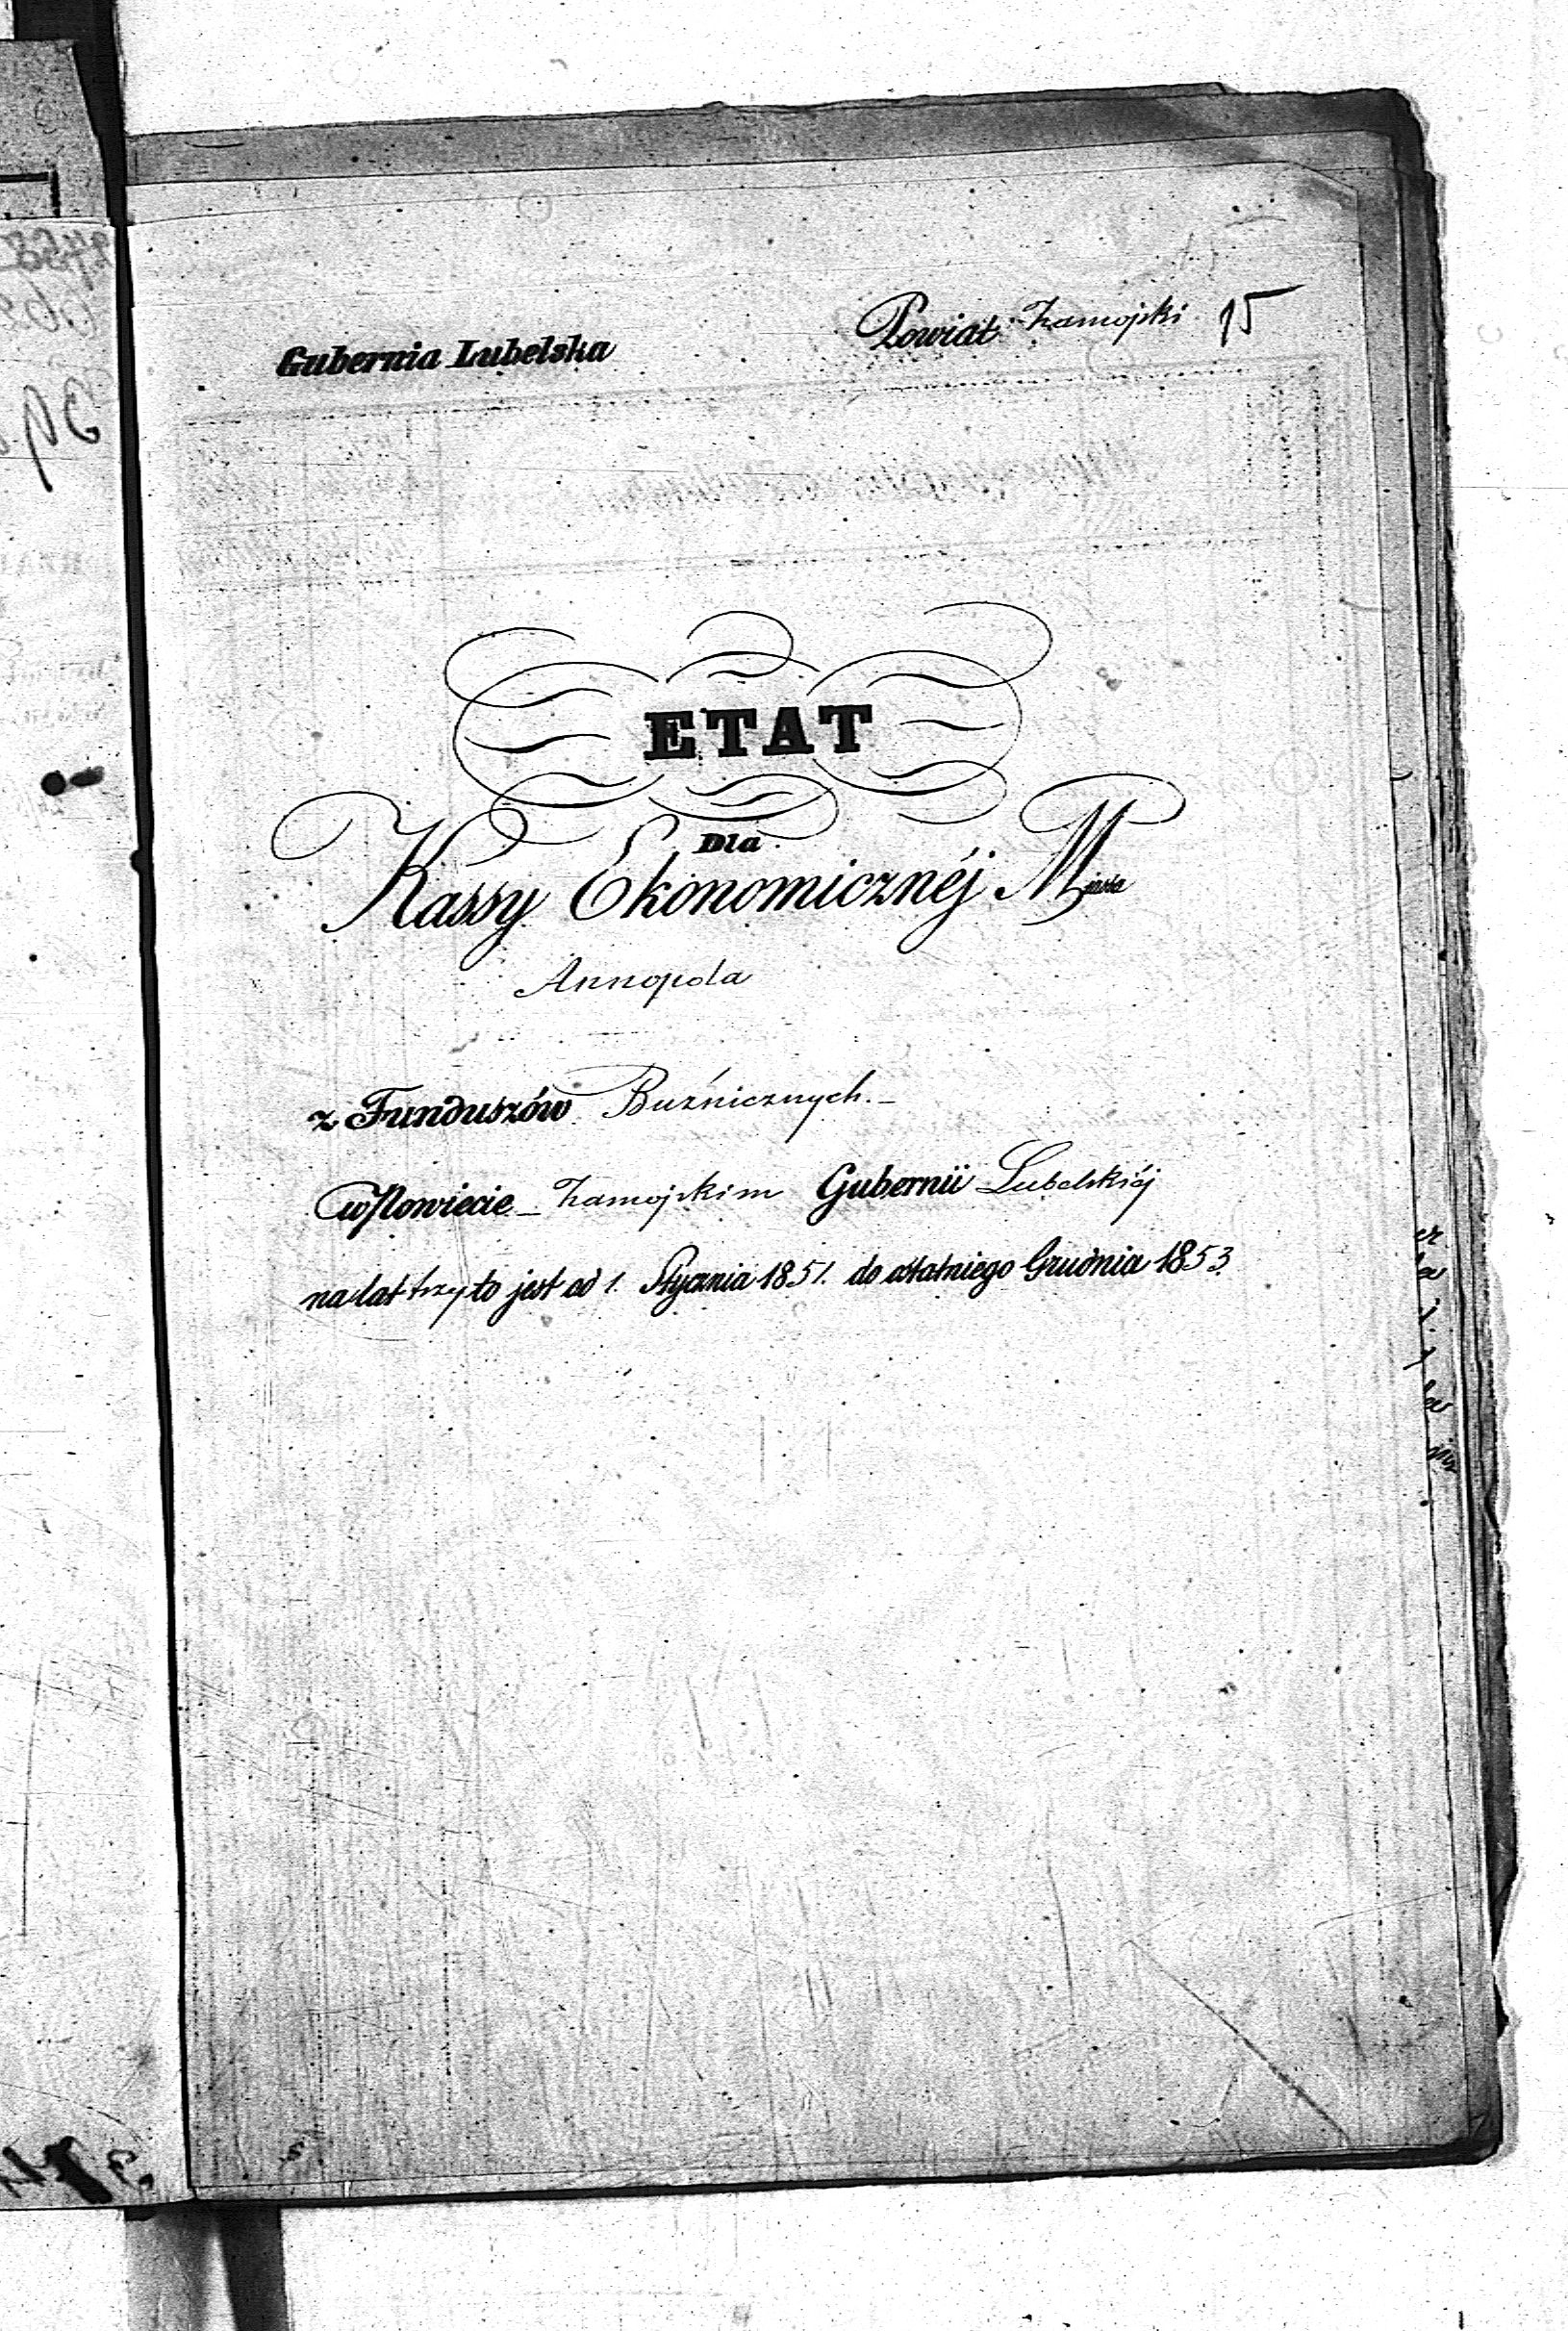 Gubernia Lubelska
Powiat Zamojski 15
ETAT
Dla
Kassy Ekonomicznéj Miasta
Annopola
z Funduszów Buźnicznych.
w Powiecie Zamojskim Gubernii Lubelskiéj
na lat trzy to jest od 1. Stycznia 1851. do ostatniego Grudnia 1853